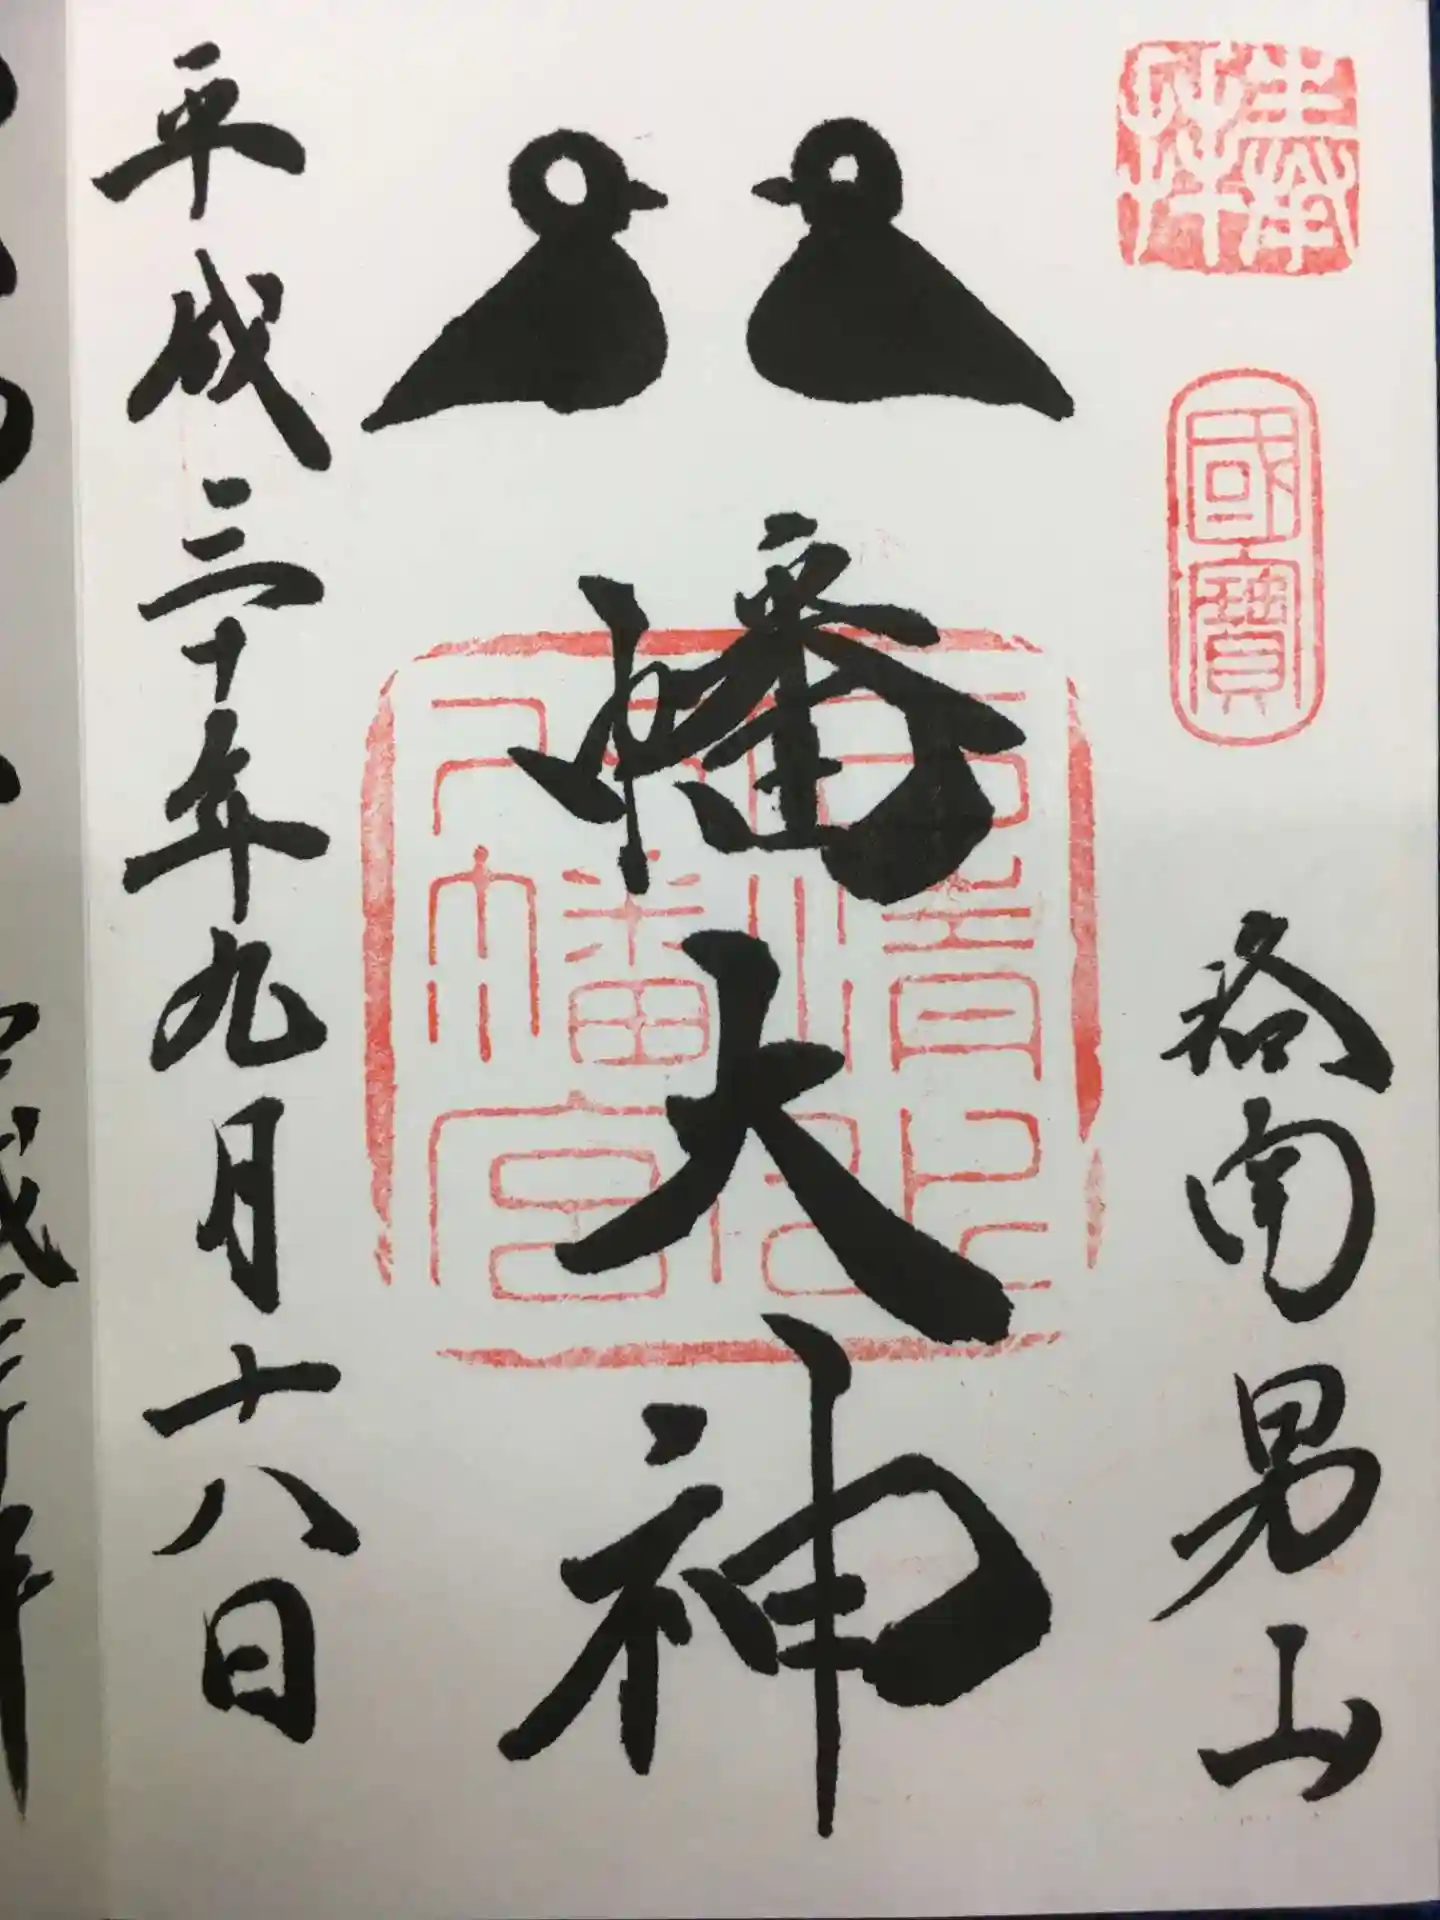 奉拝
國寳
洛南男山
八幡大神
石清水
八幡宮
平成三十年九月十八日